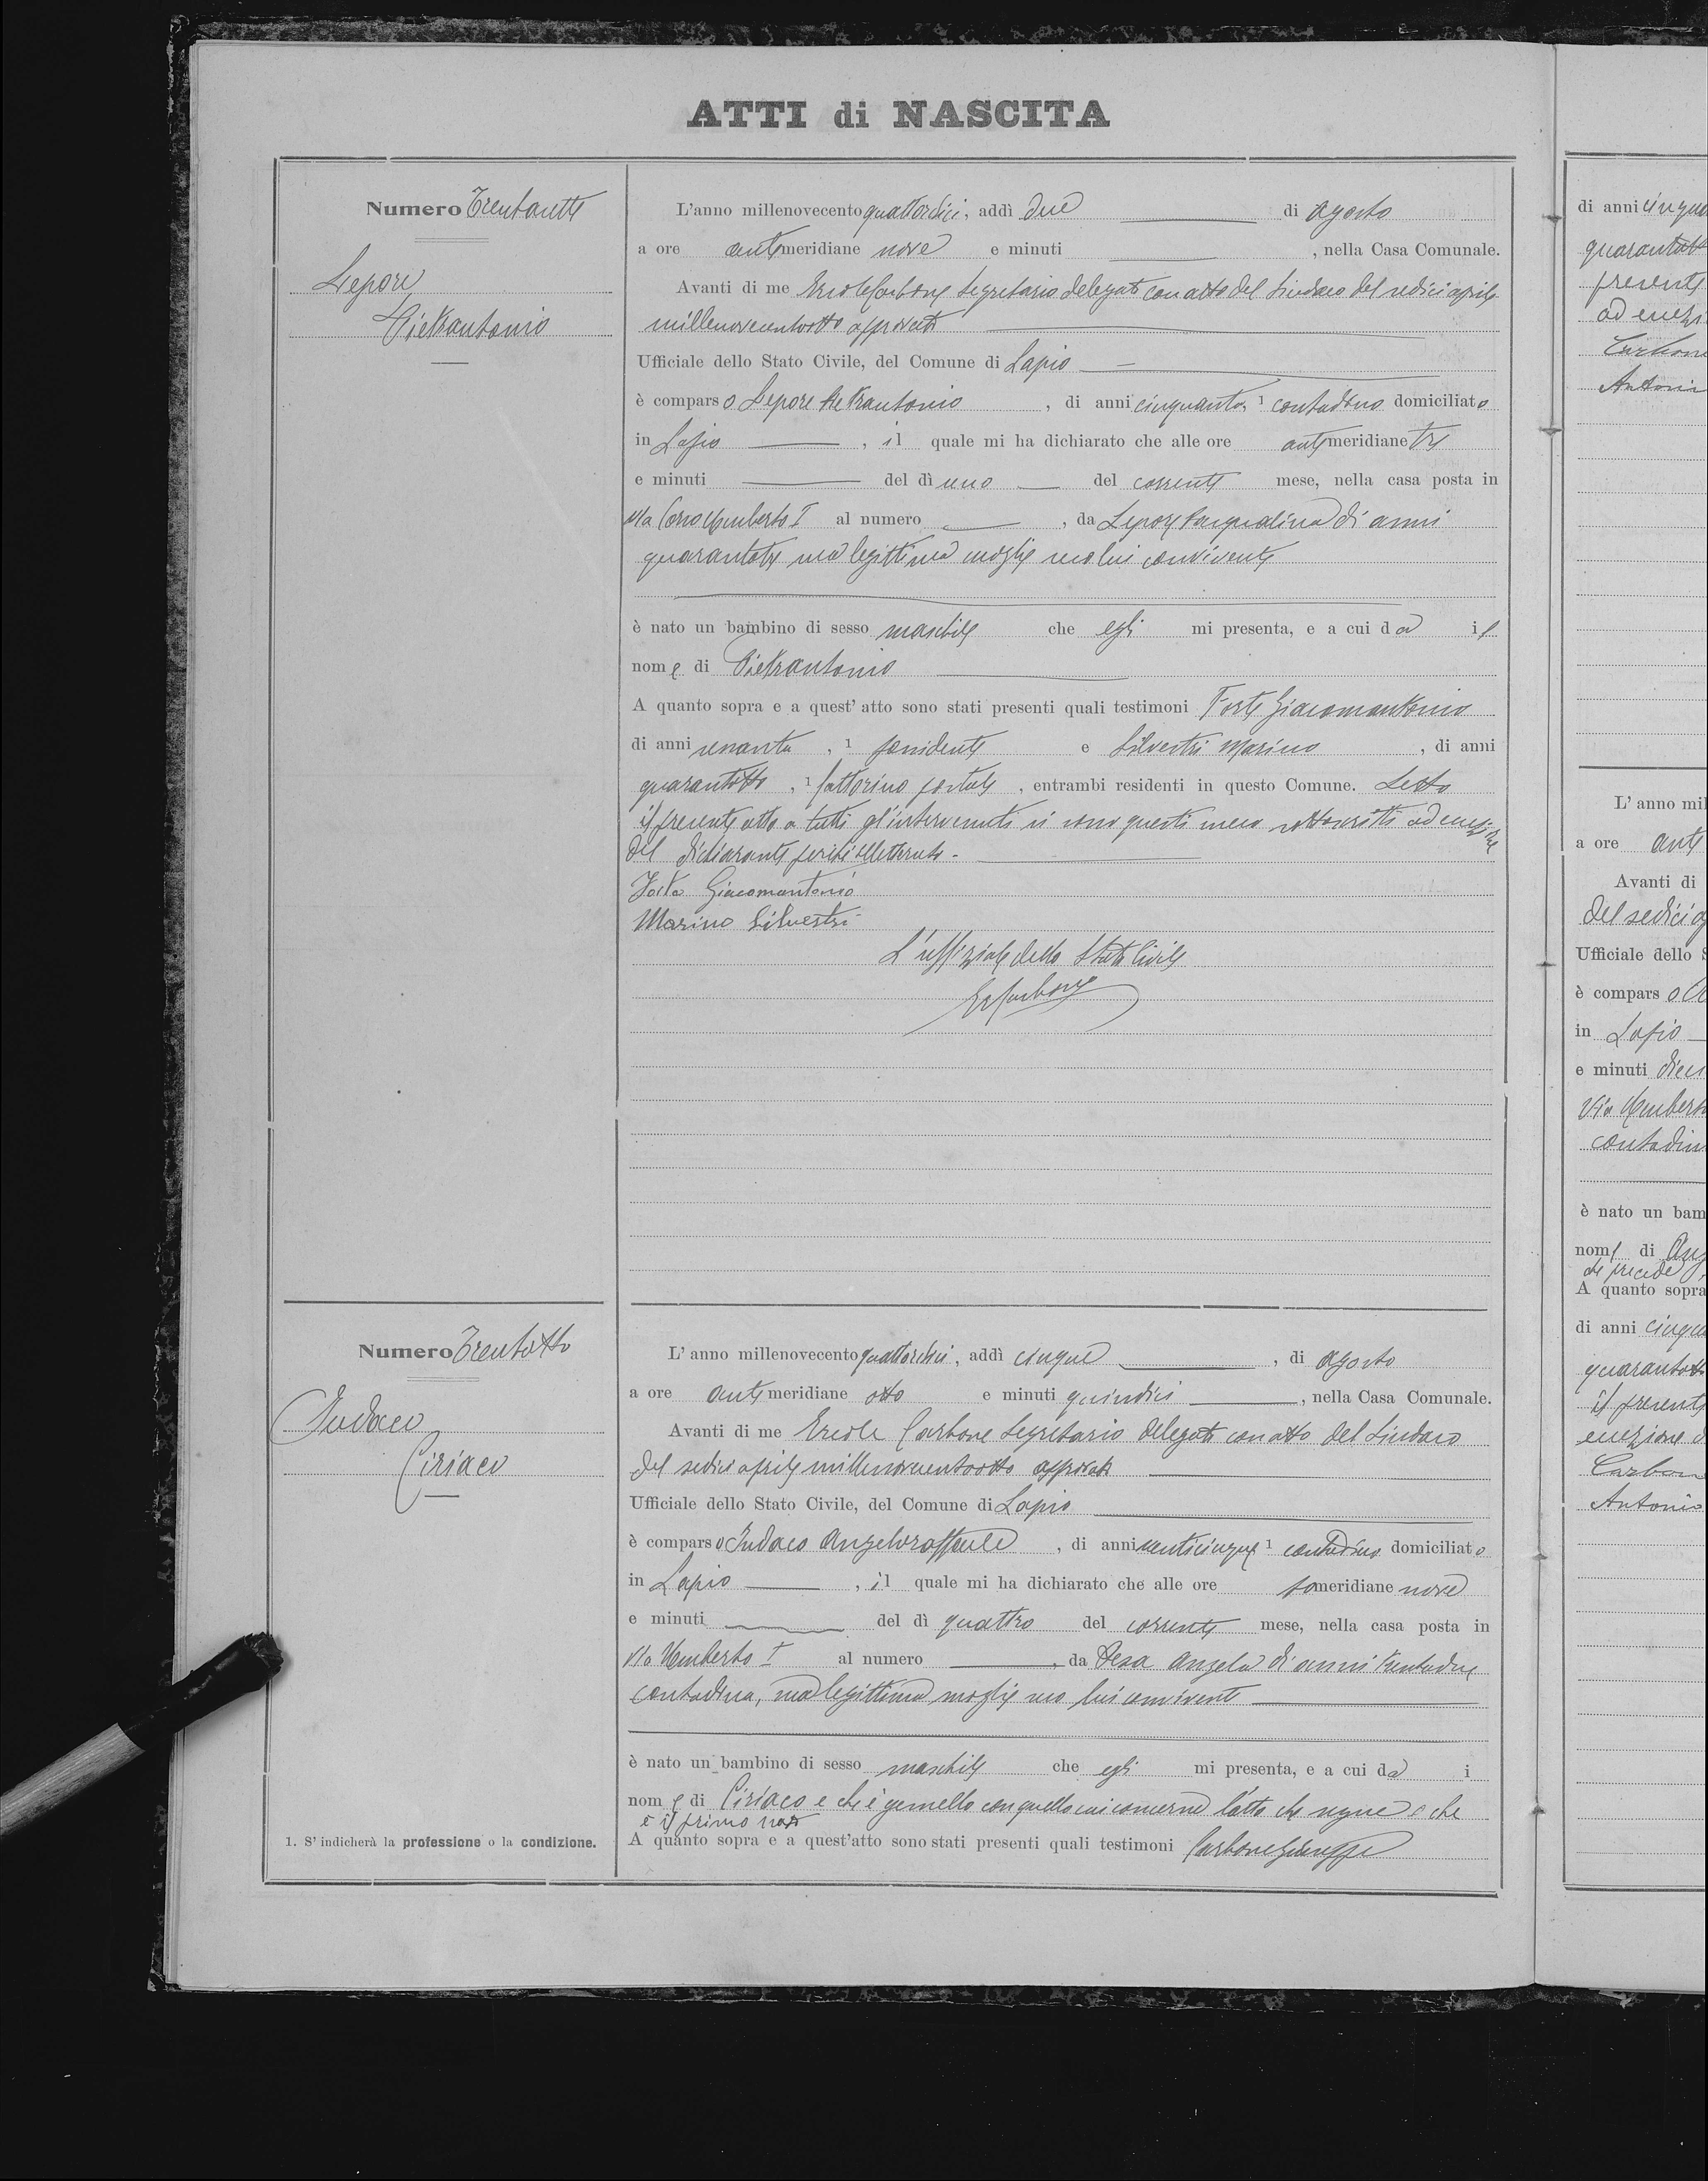 ATTI di NASCITA
Numero Trentasette
Lepore
Pietrantonio
L'anno millenovecento quattordici, addì due di Agosto
a ore antimeridiane nove e minuti , nella Casa Comunale.
Avanti di me Ercole Carbone Segretario delegato con atto del Sindaco del sedici aprile
millenovecentootto approvato
Ufficiale dello Stato Civile, del Comune di Lapio
è comparso Lepore Pietrantonio , di anni cinquanta, 1 contadino domiciliato
in Lapio , il quale mi ha dichiarato che alle ore antimeridiane tre
e minuti del dì uno del corrente mese, nella casa posta in
via Corso Umberto I al numero , da Lepore Pasqualina di anni
quarantatre sua legittima moglie seco lui convivente
è nato un bambino di sesso maschile che egli mi presenta, e a cui da il
nome di Pietrantonio
A quanto sopra e a quest' atto sono stati presenti quali testimoni Forte Giacomantonio
di anni sessanta , 1 possidente e Silvestri Marino , di anni
quarantotto , 1 fattorino postale , entrambi residenti in questo Comune. Letto
il presente atto a tutti gl'intervenuti si sono questi meco sottoscritti ad eccezione
del dichiarante perché illetterato.
Forte Giacomantonio
Marino Silvestri
L'uffiziale dello Stato Civile
E. Carbone
Numero Trentotto
Iudaco
Ciriaco
L' anno millenovecento quattordici, addì cinque , di Agosto
a ore antimeridiane otto e minuti quindici , nella Casa Comunale.
Avanti di me Ercole Carbone Segretario delegato con atto del Sindaco
del sedici aprile millenovecentootto approvato
Ufficiale dello Stato Civile, del Comune di Lapio
è comparso Iudaco Angeloraffaele , di anni venticinque 1 contadino domiciliato
in Lapio , il quale mi ha dichiarato che alle ore pomeridiane nove
e minuti del dì quattro del corrente mese, nella casa posta in
via Umberto I al numero , da Pesa Angela di anni trentadue
contadina, sua legittima moglie seco lui convivente
è nato un bambino di sesso maschile che egli mi presenta, e a cui da i
nome di Ciriaco e che è gemello con quello cui concerne l'atto che segue e che
è il primo nato
A quanto sopra e a quest'atto sono stati presenti quali testimoni Carbone Giuseppe
1. S' indicherà la professione o la condizione.
di anni
quarantotto
presente
ad
Carbone
Antonio
L' anno mil
a ore ant
Avanti di
del sedici
Ufficiale dello S
è comparso
in Lapio
e minuti dieci
via Umberto
contadin
è nato un bam
nome di
che precede
A quanto sopra
di anni
quarantotto
il presente
eccezione
Carbon
Antonio